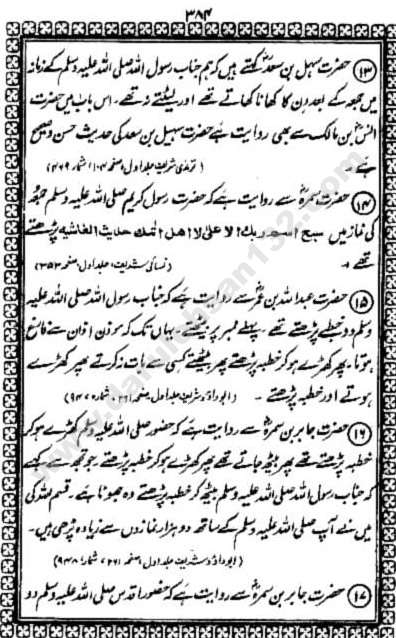 ۳۸۴
⑬ حضرت سہیل بن سعدؓ کہتے ہیں کہ ہم جناب رسول اللہ صلی اللہ علیہ وسلم کے زمانہ
میں جمعہ کے بعد دن کا کھانا کھاتے تھے اور لیٹتے نہ تھے۔ اس باب میں حضرت
انسؓ بن مالک سے بھی روایت ہے حضرت سہیل بن سعد کی حدیث حسن و صحیح
ہے۔ (ترمذی شریف جلد اول صفحہ ۱۰۴ شمار ۴۶۹)
⑭ حضرت سمرہؓ سے روایت ہے کہ حضرت رسول کریم صلی اللہ علیہ وسلم جمعہ
کی نماز میں سبح اسم ربك الاعلیٰ اور هل اتٰك حديث الغاشيه پڑھتے
تھے۔ (نسائی شریف جلد اول صفحہ ۳۵۲)
⑮ حضرت عبداللہ بن عمرؓ سے روایت ہے کہ جناب رسول اللہ صلی اللہ علیہ
وسلم دو خطبے پڑھتے تھے۔ پہلے ممبر پر بیٹھتے۔ یہاں تک کہ موذن اذان سے فارغ
ہوتا۔ پھر کھڑے ہو کر خطبہ پڑھتے پھر بیٹھتے کسی سے بات نہ کرتے پھر کھڑے
ہوتے اور خطبہ پڑھتے۔ (ابوداؤد شریف جلد اول صفحہ ۲۶۱، شمار ۹۴۷)
⑯ حضرت جابر بن سمرہؓ سے روایت ہے کہ حضور صلی اللہ علیہ وسلم کھڑے ہو کر
خطبہ پڑھتے تھے پھر بیٹھ جاتے تھے پھر کھڑے ہو کر خطبہ پڑھتے جو تجھ سے کہے
کہ جناب رسول اللہ صلی اللہ علیہ وسلم بیٹھ کر خطبہ پڑھتے وہ جھوٹا ہے۔ قسم اللہ کی
میں نے آپ صلی اللہ علیہ وسلم کے ساتھ دو ہزار نمازوں سے زیادہ پڑھی ہیں۔
(ابوداؤد شریف جلد اول صفحہ ۲۶۱، شمار ۹۴۸)
⑰ حضرت جابر بن سمرہؓ سے روایت ہے کہ حضور اقدس صلی اللہ علیہ وسلم دو